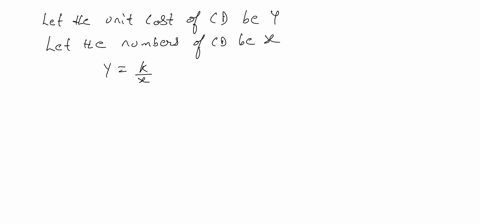 Let the unit cost of CD be Y
Let the numbers of CD be x
Y = k/x